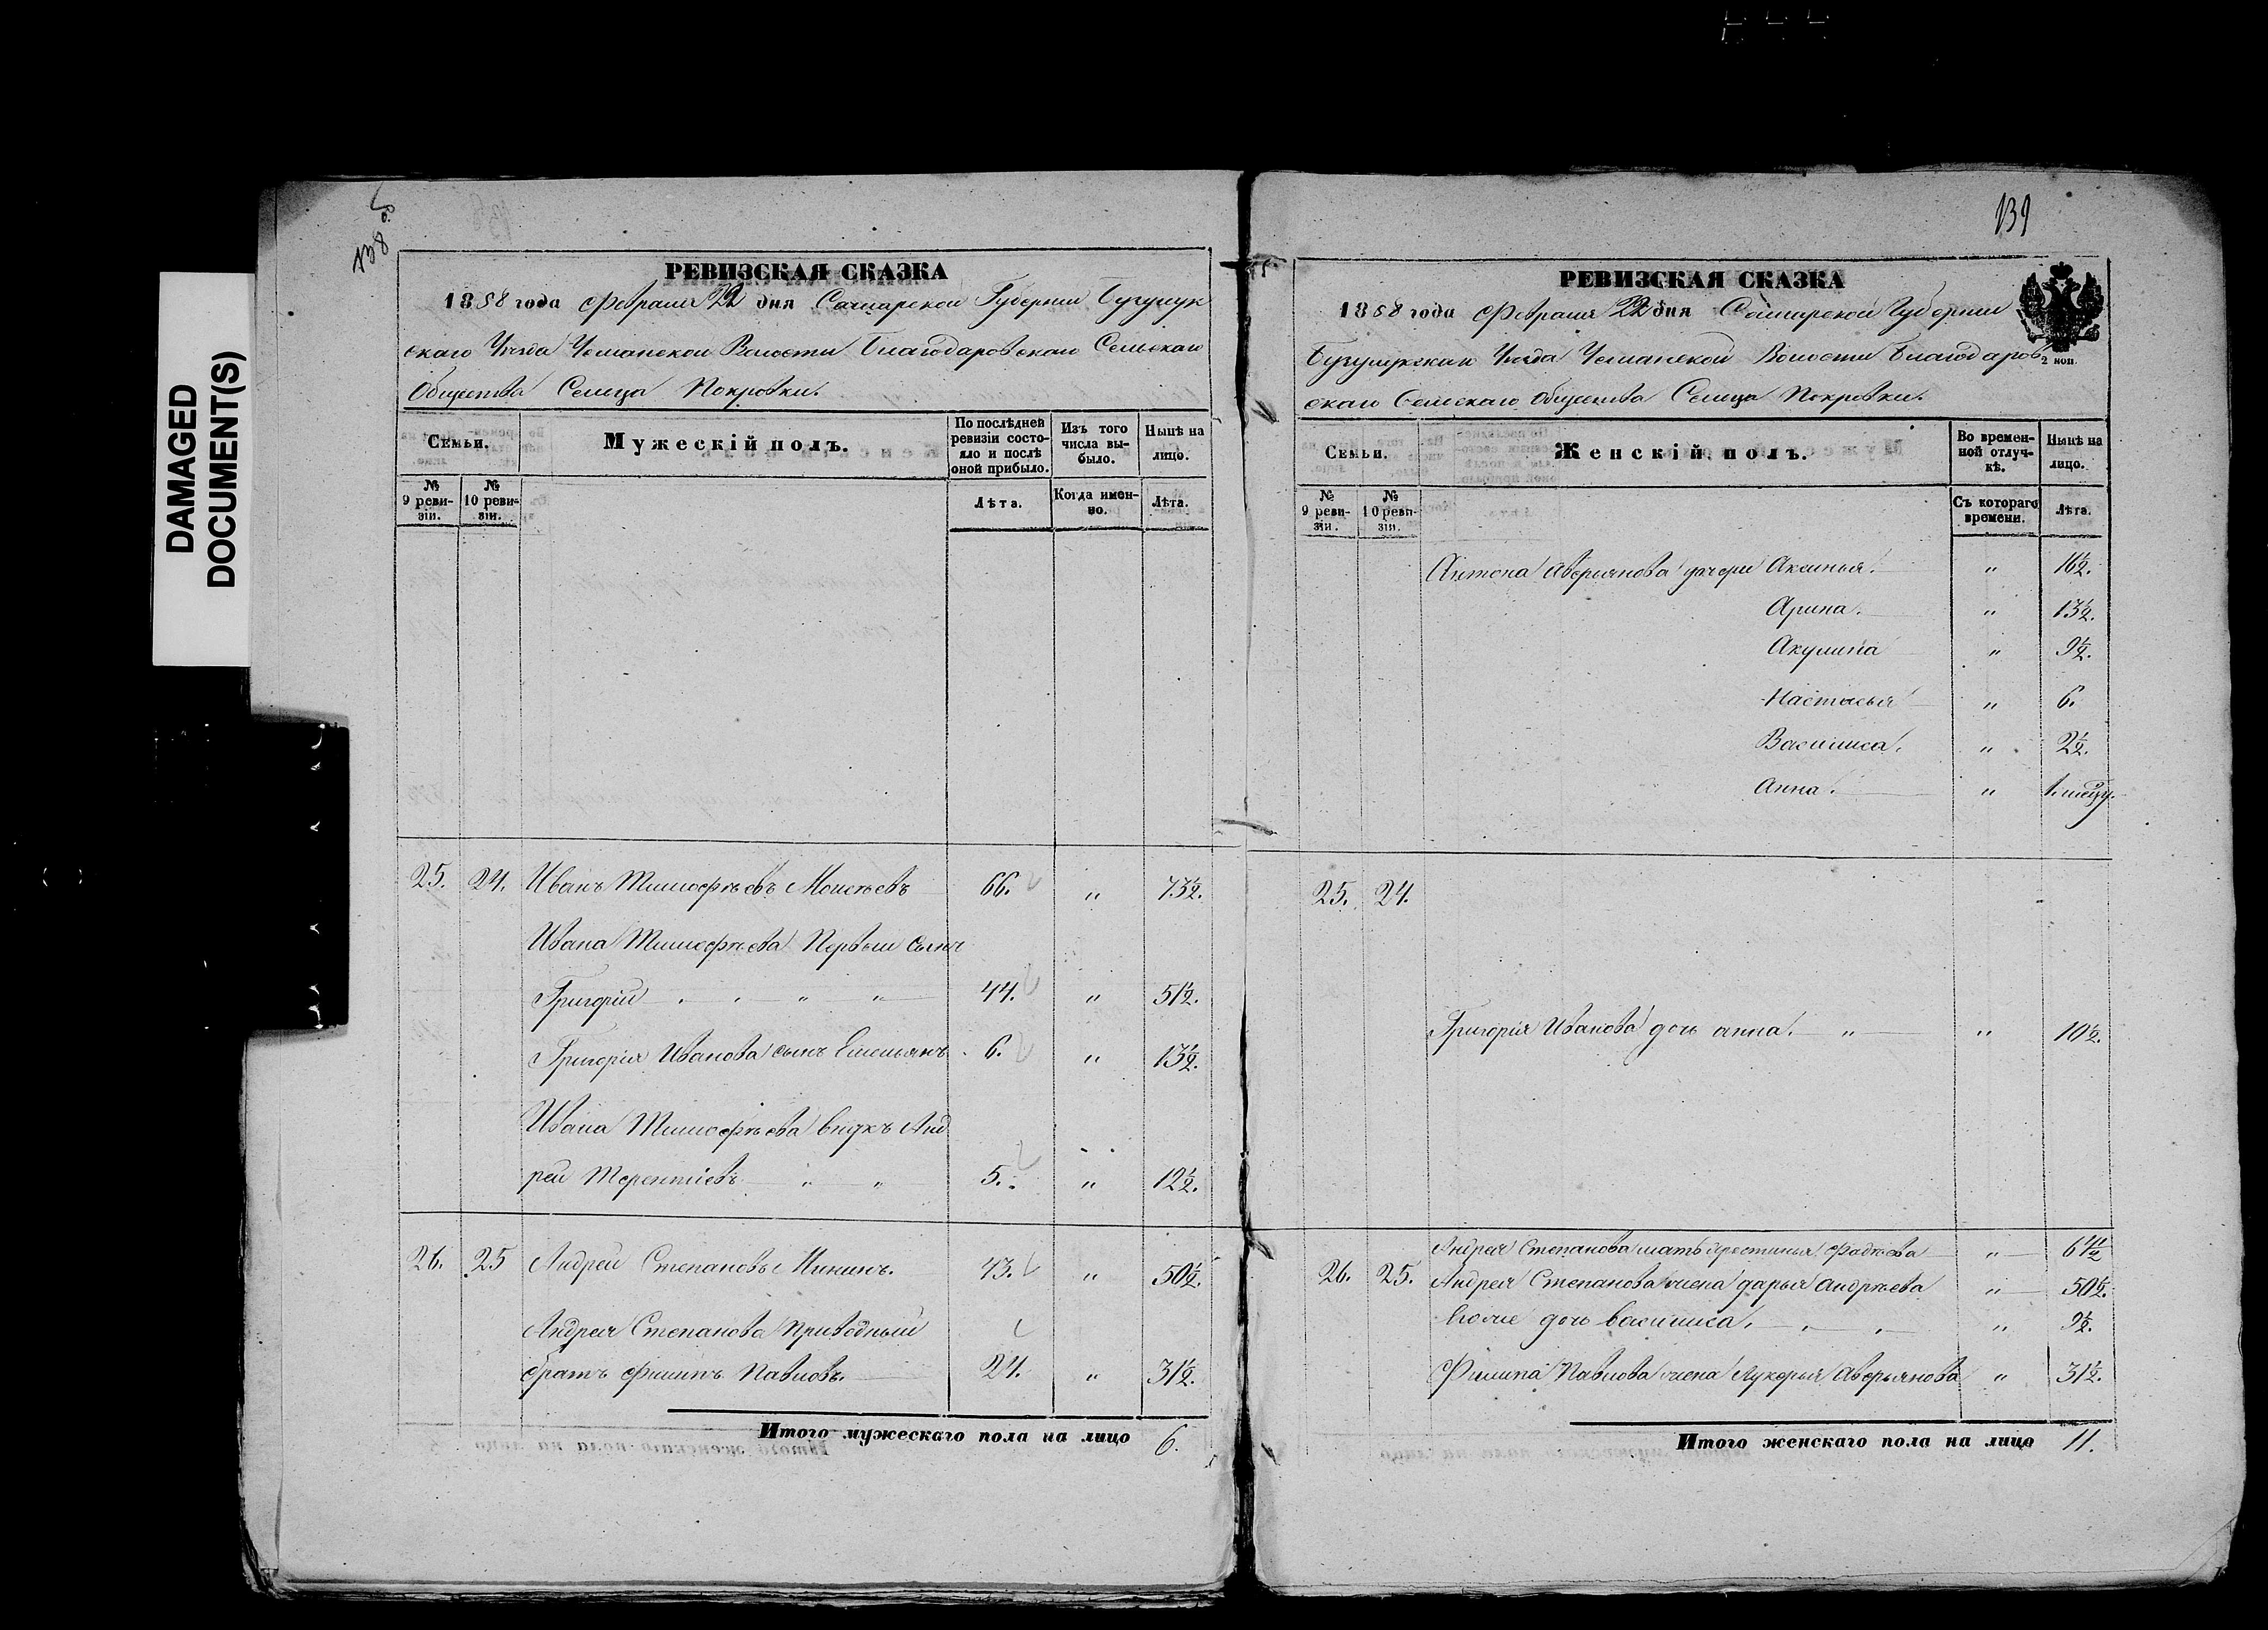 DAMAGED
DOCUMENT(S)
138 об
РЕВИЗСКАЯ СКАЗКА
1858 года Февраля 22 дня Самарской Губернии Бузулук
скаго Уѣзда Чеманской Волости Благодаровскаго Сельскаго
Общества Сельца Покровки.
Семьи. Мужескій полъ. По послѣдней ревизіи состояло и послѣ оной прибыло. Изъ того числа выбыло. Нынѣ на лицо.
№ 9 ревизіи. № 10 ревизіи. Лѣта. Когда именно. Лѣта.
25. 24. Иванъ Тимофѣевъ Моисѣевъ 66. " 73½.
Ивана Тимофѣева Первый сынъ
Григорій " " 44. " 51½.
Григорія Иванова сынъ Емельянъ 6. " 13½.
Ивана Тимофѣева внукъ Анд
рей Терентіевъ " " 5. " 12½.
26. 25 Андрей Степановъ Никинъ. 43. " 50½.
Андрея Степанова Приводный
братъ Филипъ Павловъ. 24. " 31½.
Итого мужескаго пола на лицо 6.
139
РЕВИЗСКАЯ СКАЗКА
1858 года Февраля 22 дня Самарской Губернии
Бузулукскаго Уѣзда Чеманской Волости Благодаров
2 коп.
скаго Сельскаго Общества Сельца Покровки.
Семьи. Женскій полъ. Во временной отлучкѣ. Нынѣ на лицо.
№ 9 ревизіи. № 10 ревизіи. Съ котораго времени. Лѣта.
Антона Аверьянова дочери Аксинья. " 16½.
Арина. " 13½.
Акулина " 9½.
Настасья " 6.
Василиса. " 2½.
Анна. " 1.
25. 24.
Григорія Иванова дочь анна. " " 10½.
Андрея Степанова мать Фадѣева "
26. 25. Андрея Степанова жена дарья андрѣева " 50½.
дочь василиса. " 9½.
Филипа Павлова жена Лукерья Аверьянова " 31½.
Итого женскаго пола на лицо 11.